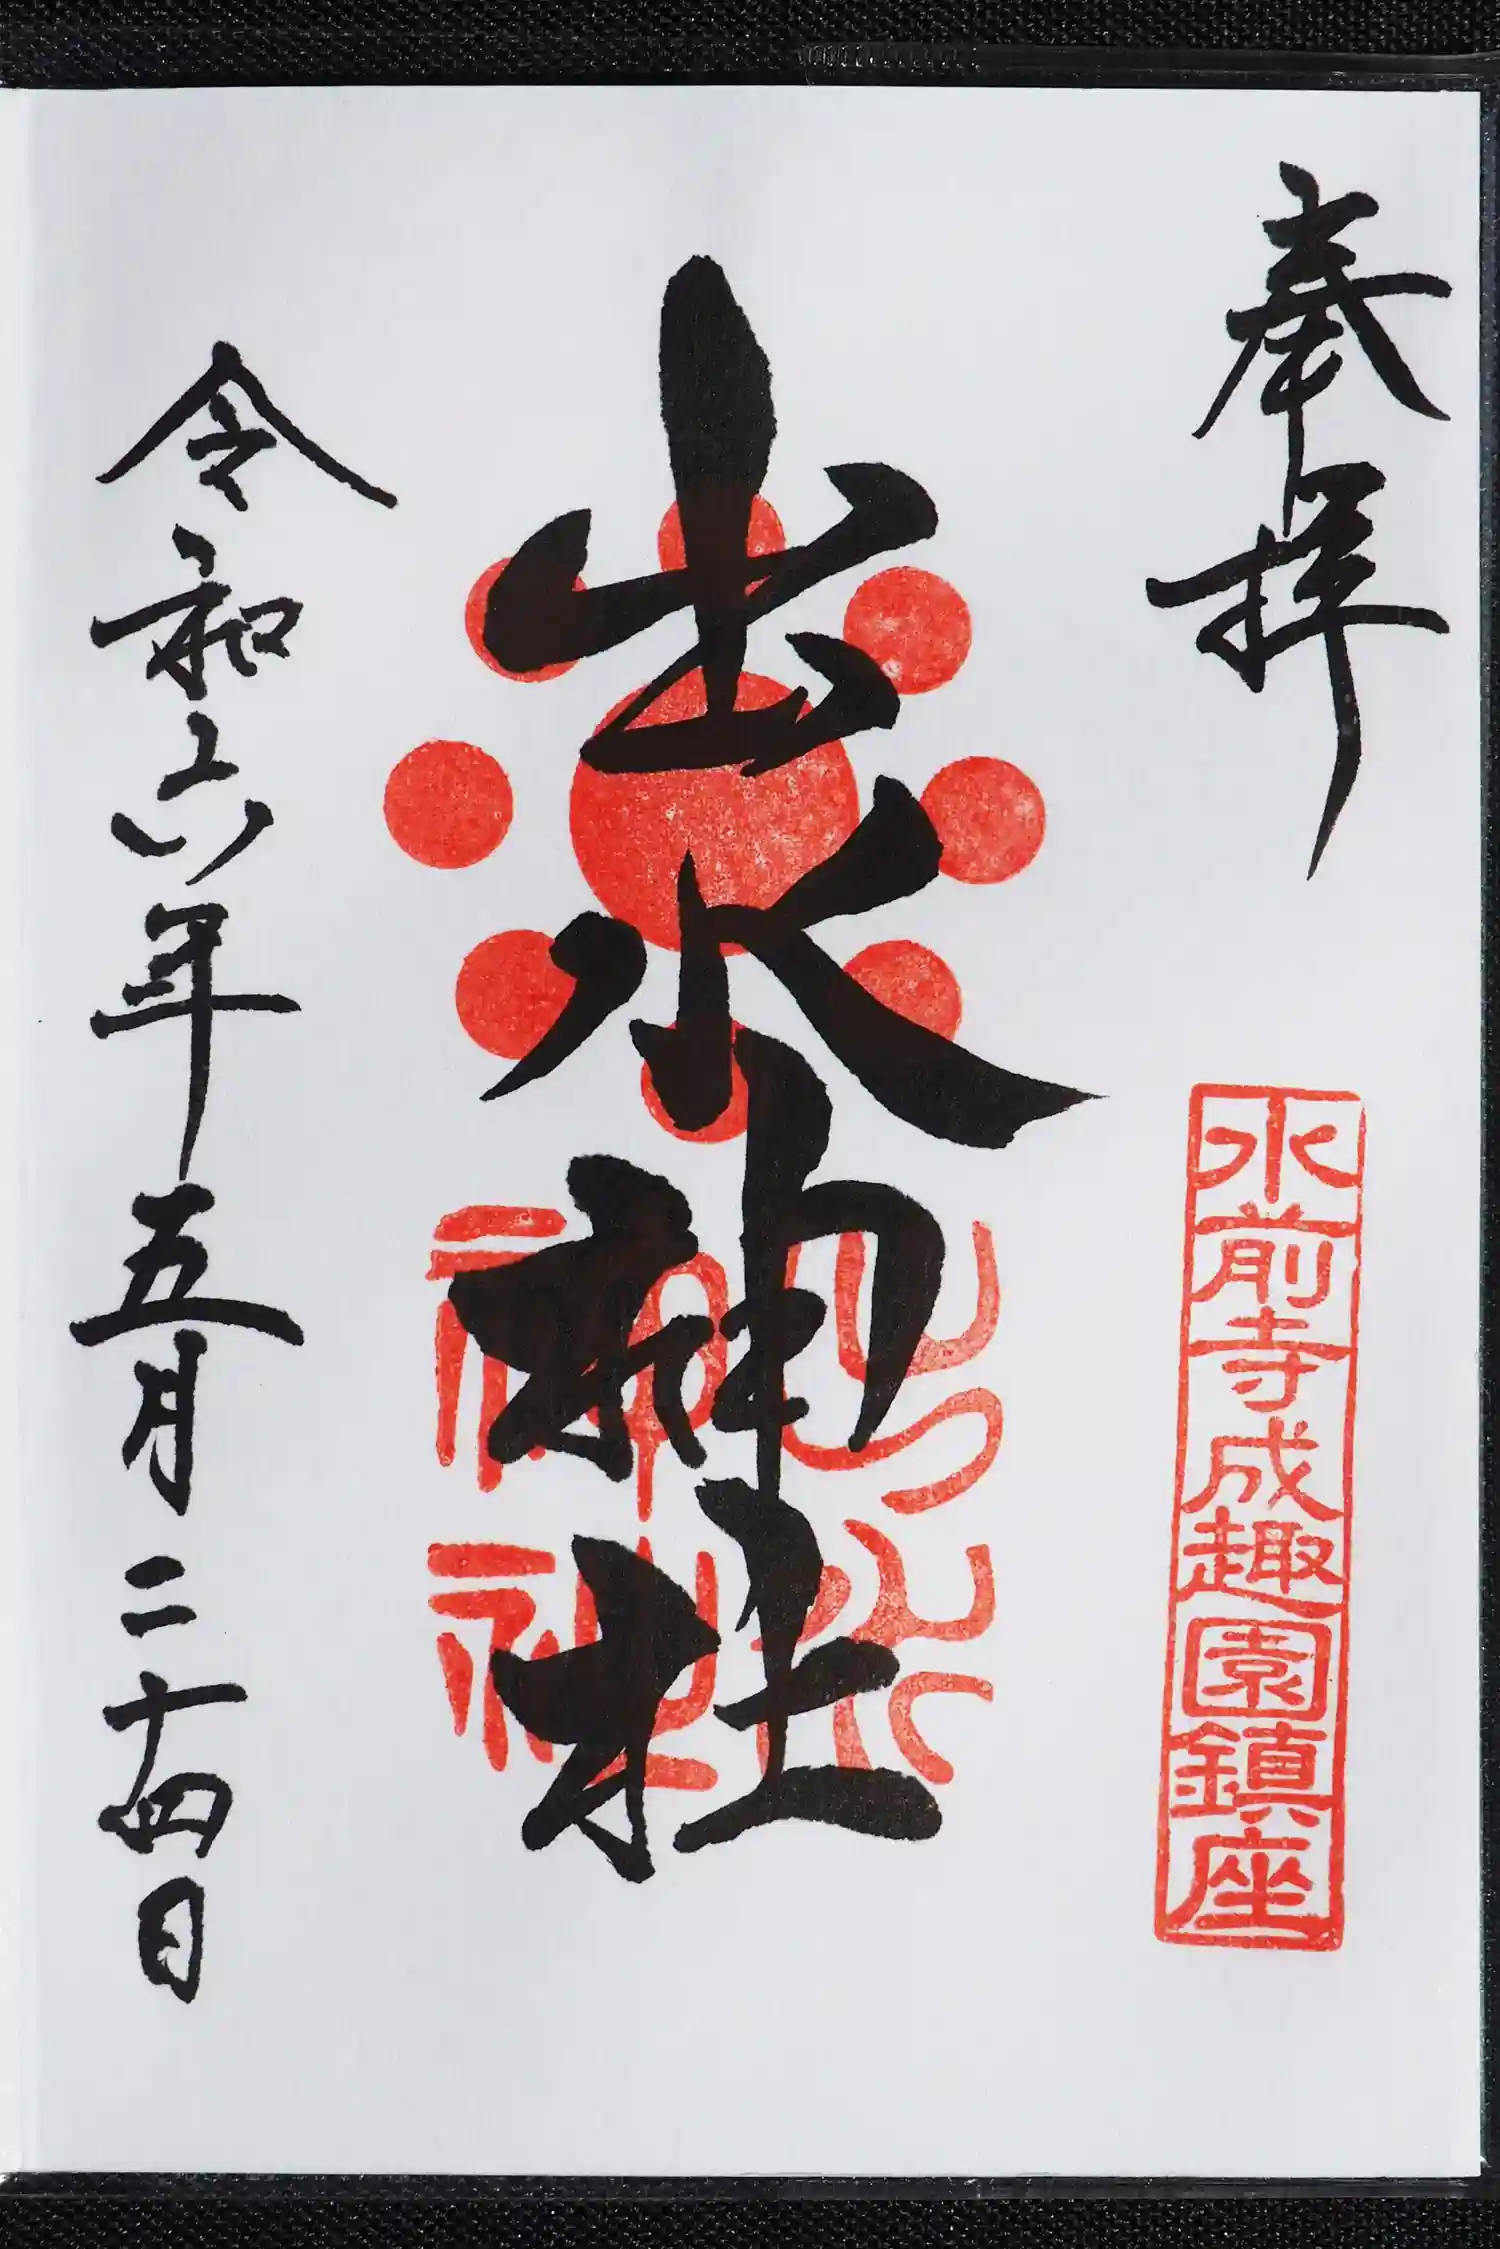 奉拝
水前寺成趣園鎮座
出水神社
出水神社
令和六年五月二十四日